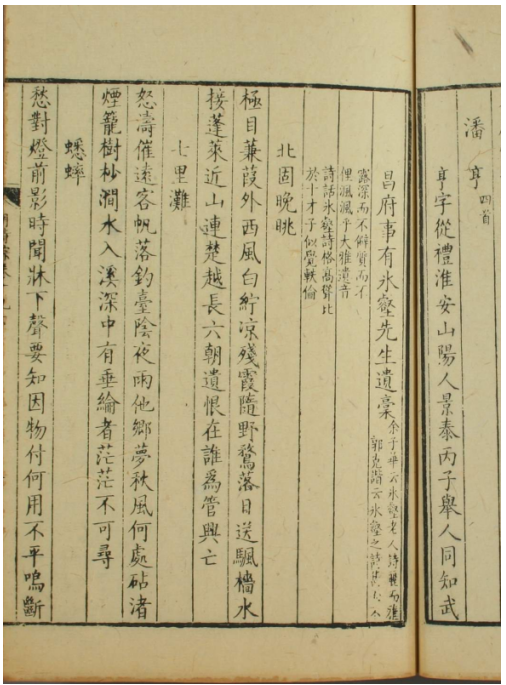 潘亨四首
亨字從禮淮安山陽人景泰丙子舉人同知武
昌府事有氷壑先生遺槀
露深而不僻質而不
俚渢渢乎大雅遺音
詩話氷壑詩格高聲比
於十才子似覺軼倫
北固晩眺
極目蒹葭外西風白紵凉殘霞隨野鶩落日送颿檣水
接蓬萊近山連楚越長六朝遺恨在誰爲管興亡
七里灘
怒濤催遠客帆落釣臺陰夜雨他鄉夢秋風何處砧渚
煙籠樹杪澗水入溪深中有垂綸者茫茫不可尋
蟋蟀
愁對燈前影時聞牀下聲要知因物付何用不平鳴斷